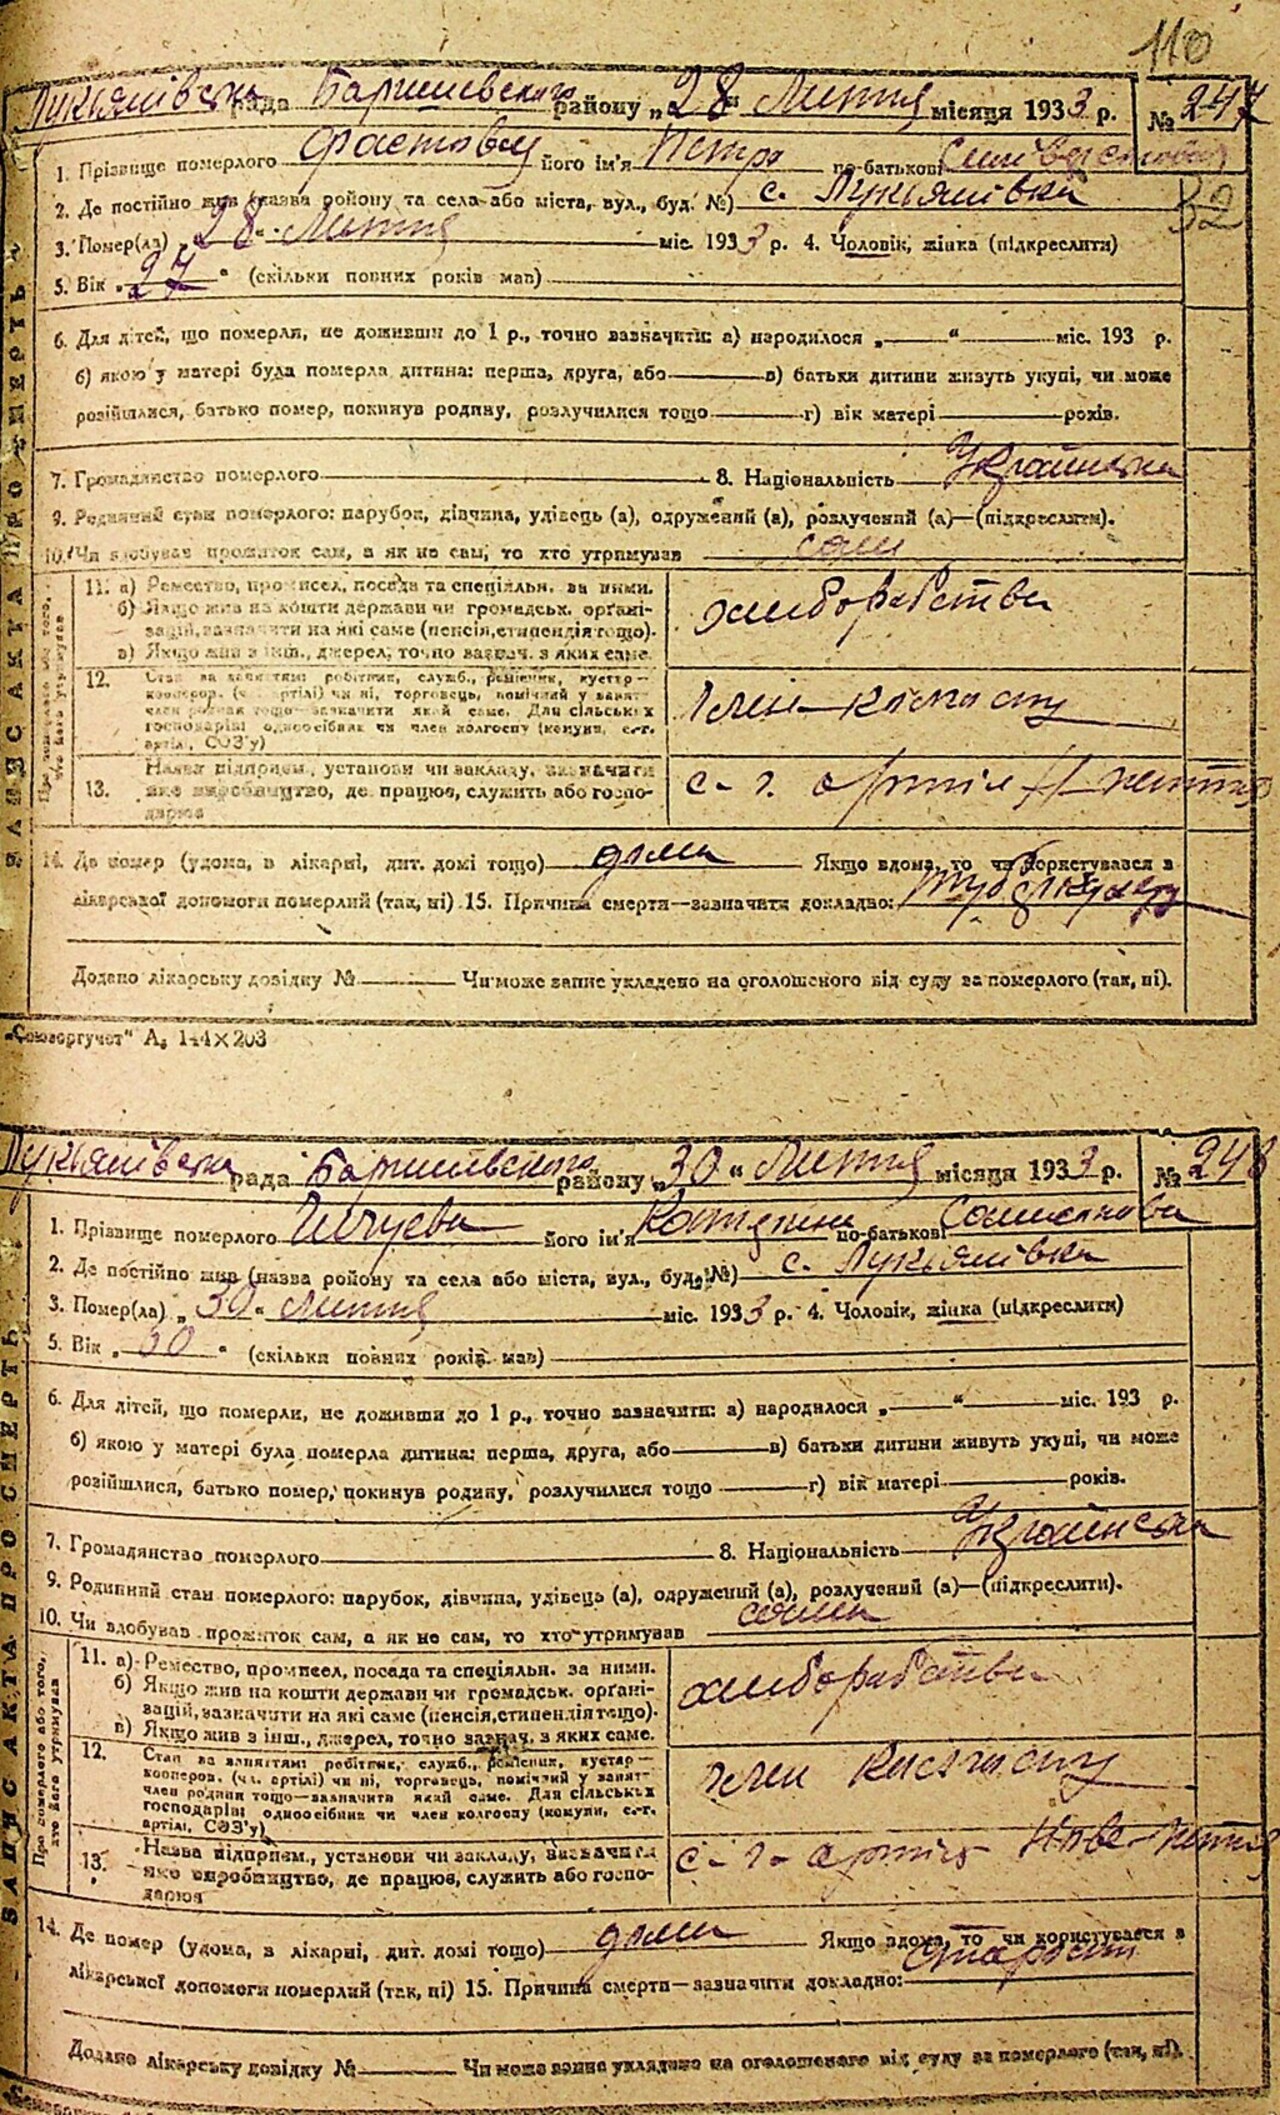 110
Лукьянівська рада Баришевського району „28“ Липня місяця 1933 р. № 247
1. Прізвище померлого його ім'я Петро по-батькові
32
2. Де постійно жив (назва району та села або міста, вул., буд. №) с. Лукьянівка
3. Помер(ла) „28“ Липня міс. 1933 р. 4. Чоловік, жінка (підкреслити)
5. Вік „27“ (скільки повних років мав)
6. Для дітей, що померли, не доживши до 1 р., точно зазначити: а) народилося „ “ міс. 193 р.
б) якою у матері була померла дитина: перша, друга, або в) батьки дитини живуть укупі, чи може
розійшлися, батько помер, покинув родину, розлучилися тощо г) вік матері років.
7. Громадянство померлого 8. Національність Українська
9. Родинний стан померлого: парубок, дівчина, удівець (а), одружений (а), розлучений (а)—(підкреслити).
10. Чи здобував прожиток сам, а як не сам, то хто утримував сам
11. а) Ремество, промисел, посада та спеціяльн. за ними.
б) Якщо жив на кошти держави чи громадськ. органі-
зацій, зазначити на які саме (пенсія, стипендія тощо).
в) Якщо жив з інш., джерел, точно зазнач. з яких саме.
хлиборобство
12. Стан за заняттям: робітник, служб., ремісник, кустар—
кооперов. (чл. артілі) чи ні, торговець, помічний у занят—
член родини тощо—зазначити який саме. Для сільських
господарів: одноосібник чи член колгоспу (комуни, с.-г.
артілі, СОЗ'у)
член колгоспу
13. Назва підприєм., установи чи закладу, визначити
яке виробництво, де працює, служить або госпо-
дарює
с-г. артіль
14. Де помер (удома, в лікарні, дит. домі тощо) дома Якщо вдома, то чи користувався з
лікарської допомоги померлий (так, ні) 15. Причина смерти—зазначити докладно: туберкульоз
Додано лікарську довідку № Чи може запис укладено на оголошеного від суду за померлого (так, ні).
„Союзоргучет“ А₅ 144×203
ЗАПИС АКТА ПРО СМЕРТЬ
Про померлого або того, хто його утримував
Лукьянівська рада Баришевського району „30“ Липня місяця 1933 р. № 248
1. Прізвище померлого його ім'я Катерина по-батькові
2. Де постійно жив (назва району та села або міста, вул., буд. №) с. Лукьянівка
3. Помер(ла) „30“ Липня міс. 1933 р. 4. Чоловік, жінка (підкреслити)
5. Вік „ “ (скільки повних років мав)
6. Для дітей, що померли, не доживши до 1 р., точно зазначити: а) народилося „ “ міс. 193 р.
б) якою у матері була померла дитина: перша, друга, або в) батьки дитини живуть укупі, чи може
розійшлися, батько помер, покинув родину, розлучилися тощо г) вік матері років.
7. Громадянство померлого 8. Національність Українська
9. Родинний стан померлого: парубок, дівчина, удівець (а), одружений (а), розлучений (а)—(підкреслити).
10. Чи здобував прожиток сам, а як не сам, то хто утримував сама
11. а) Ремество, промисел, посада та спеціяльн. за ними.
б) Якщо жив на кошти держави чи громадськ. органі-
зацій, зазначити на які саме (пенсія, стипендія тощо).
в) Якщо жив з інш., джерел, точно зазнач. з яких саме.
хлиборобство
12. Стан за заняттям: робітник, служб., ремісник, кустар—
кооперов. (чл. артілі) чи ні, торговець, помічний у занят—
член родини тощо—зазначити який саме. Для сільських
господарів: одноосібник чи член колгоспу (комуни, с.-г.
артілі, СОЗ'у)
член колгоспу
13. Назва підприєм., установи чи закладу, визначити
яке виробництво, де працює, служить або госпо-
дарює
с-г- артіль
14. Де помер (удома, в лікарні, дит. домі тощо) дома Якщо вдома, то чи користувався з
лікарської допомоги померлий (так, ні) 15. Причина смерти—зазначити докладно: старість
Додано лікарську довідку № Чи може запис укладено на оголошеного від суду за померлого (так, ні).
ЗАПИС АКТА ПРО СМЕРТЬ
Про померлого або того, хто його утримував